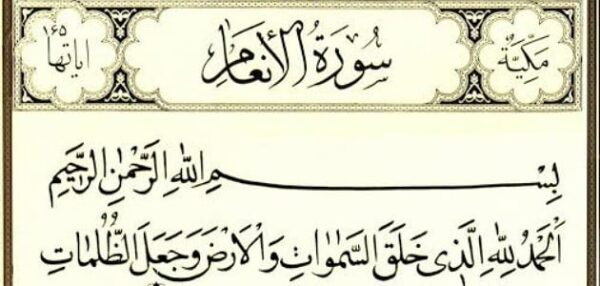 مكية سورة الأنعام اياتها ١٦٥
بِسْمِ اللهِ الرَّحْمٰنِ الرَّحِيمِ
اَلْحَمْدُ لِلّٰهِ الَّذِى خَلَقَ السَّمٰوَاتِ وَالْاَرْضَ وَجَعَلَ الظُّلُمَاتِ